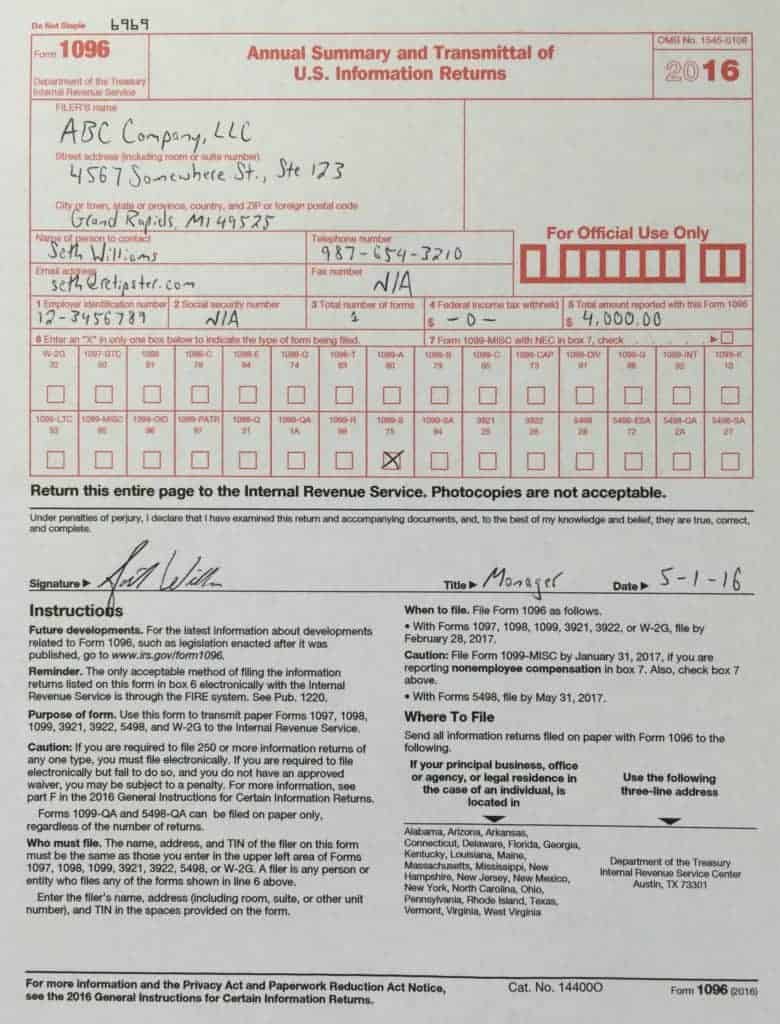 Do Not Staple 6969
Form 1096
Department of the Treasury
Internal Revenue Service
Annual Summary and Transmittal of
U.S. Information Returns
OMB No. 1545-0108
2016
FILER'S name
ABC Company, LLC
Street address (including room or suite number)
4567 Somewhere St., Ste 123
City or town, state or province, country, and ZIP or foreign postal code
Grand Rapids, MI 49525
Name of person to contact
Seth Williams
Telephone number
987-654-3210
Email address
seth@retipster.com
Fax number
N/A
For Official Use Only
1 Employer identification number
12-3456789
2 Social security number
N/A
3 Total number of forms
1
4 Federal income tax withheld
$ -0-
5 Total amount reported with this Form 1096
$ 4,000.00
6 Enter an "X" in only one box below to indicate the type of form being filed.
7 Form 1099-MISC with NEC in box 7, check
W-2G 1097-BTC 1098 1098-C 1098-E 1098-Q 1098-T 1099-A 1099-B 1099-C 1099-CAP 1099-DIV 1099-G 1099-INT 1099-K
32 50 81 78 84 74 83 80 79 85 73 91 86 92 10
1099-LTC 1099-MISC 1099-OID 1099-PATR 1099-Q 1099-QA 1099-R 1099-S 1099-SA 3921 3922 5498 5498-ESA 5498-QA 5498-SA
93 95 96 97 31 1A 98 75 94 25 26 28 72 2A 27
X
Return this entire page to the Internal Revenue Service. Photocopies are not acceptable.
Under penalties of perjury, I declare that I have examined this return and accompanying documents, and, to the best of my knowledge and belief, they are true, correct,
and complete.
Signature Title Manager Date 5-1-16
Instructions
Future developments. For the latest information about developments
related to Form 1096, such as legislation enacted after it was
published, go to www.irs.gov/form1096.
Reminder. The only acceptable method of filing the information
returns listed on this form in box 6 electronically with the Internal
Revenue Service is through the FIRE system. See Pub. 1220.
Purpose of form. Use this form to transmit paper Forms 1097, 1098,
1099, 3921, 3922, 5498, and W-2G to the Internal Revenue Service.
Caution: If you are required to file 250 or more information returns of
any one type, you must file electronically. If you are required to file
electronically but fail to do so, and you do not have an approved
waiver, you may be subject to a penalty. For more information, see
part F in the 2016 General Instructions for Certain Information Returns.
Forms 1099-QA and 5498-QA can be filed on paper only,
regardless of the number of returns.
Who must file. The name, address, and TIN of the filer on this form
must be the same as those you enter in the upper left area of Forms
1097, 1098, 1099, 3921, 3922, 5498, or W-2G. A filer is any person or
entity who files any of the forms shown in line 6 above.
Enter the filer's name, address (including room, suite, or other unit
number), and TIN in the spaces provided on the form.
When to file. File Form 1096 as follows.
• With Forms 1097, 1098, 1099, 3921, 3922, or W-2G, file by
February 28, 2017.
Caution: File Form 1099-MISC by January 31, 2017, if you are
reporting nonemployee compensation in box 7. Also, check box 7
above.
• With Forms 5498, file by May 31, 2017.
Where To File
Send all information returns filed on paper with Form 1096 to the
following.
If your principal business, office
or agency, or legal residence in
the case of an individual, is
located in
Use the following
three-line address
Alabama, Arizona, Arkansas,
Connecticut, Delaware, Florida, Georgia,
Kentucky, Louisiana, Maine,
Massachusetts, Mississippi, New
Hampshire, New Jersey, New Mexico,
New York, North Carolina, Ohio,
Pennsylvania, Rhode Island, Texas,
Vermont, Virginia, West Virginia
Department of the Treasury
Internal Revenue Service Center
Austin, TX 73301
For more information and the Privacy Act and Paperwork Reduction Act Notice,
see the 2016 General Instructions for Certain Information Returns.
Cat. No. 14400O
Form 1096 (2016)